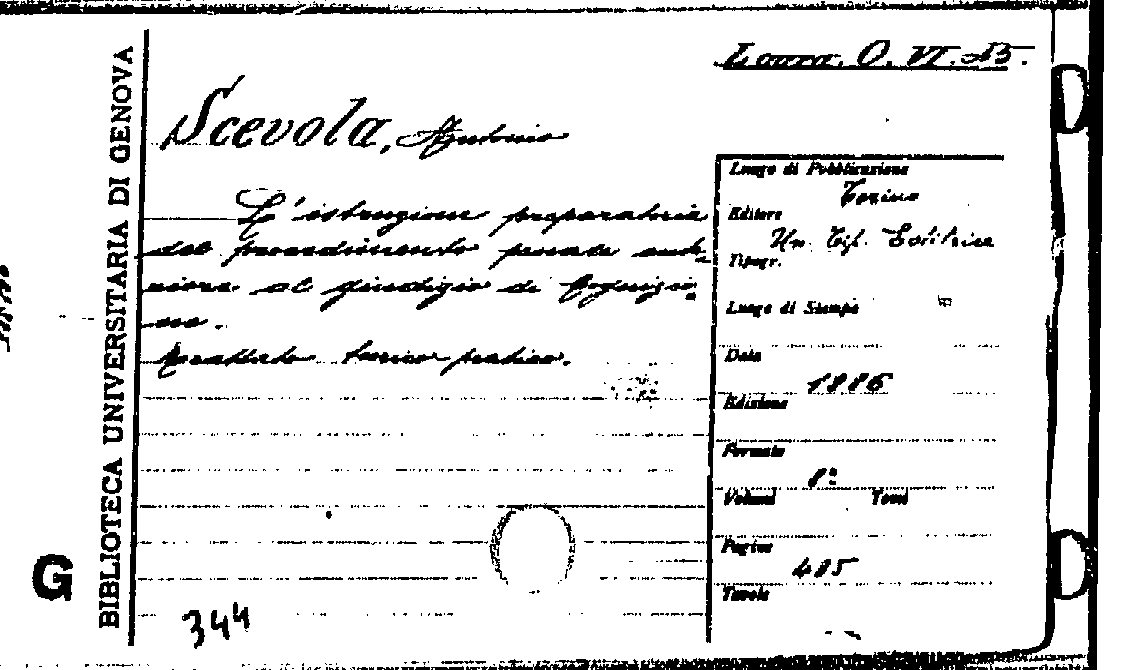 O. VI. 25.
Scevola, Antonio
L'istruzione preparatoria
del procedimento penale ante-
riore al giudizio di cognizio-
ne.
Trattato teorico pratico.
Luogo di Pubblicazione
Torino
Editore
Un. Tip. Editrice
Tipogr.
Luogo di Stampa
Data
1886
Edizione
Formato
8º
Volumi Tomi
Pagine
485
Tavole
344
BIBLIOTECA UNIVERSITARIA DI GENOVA
G